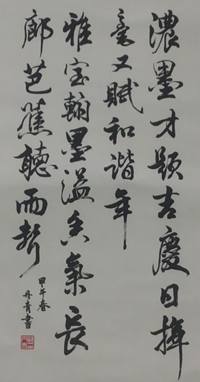 濃墨才題吉慶日揮
毫又賦和諧年
雅室翰墨溢香氣長
廊芭蕉聽雨聲
甲午春
丹青書